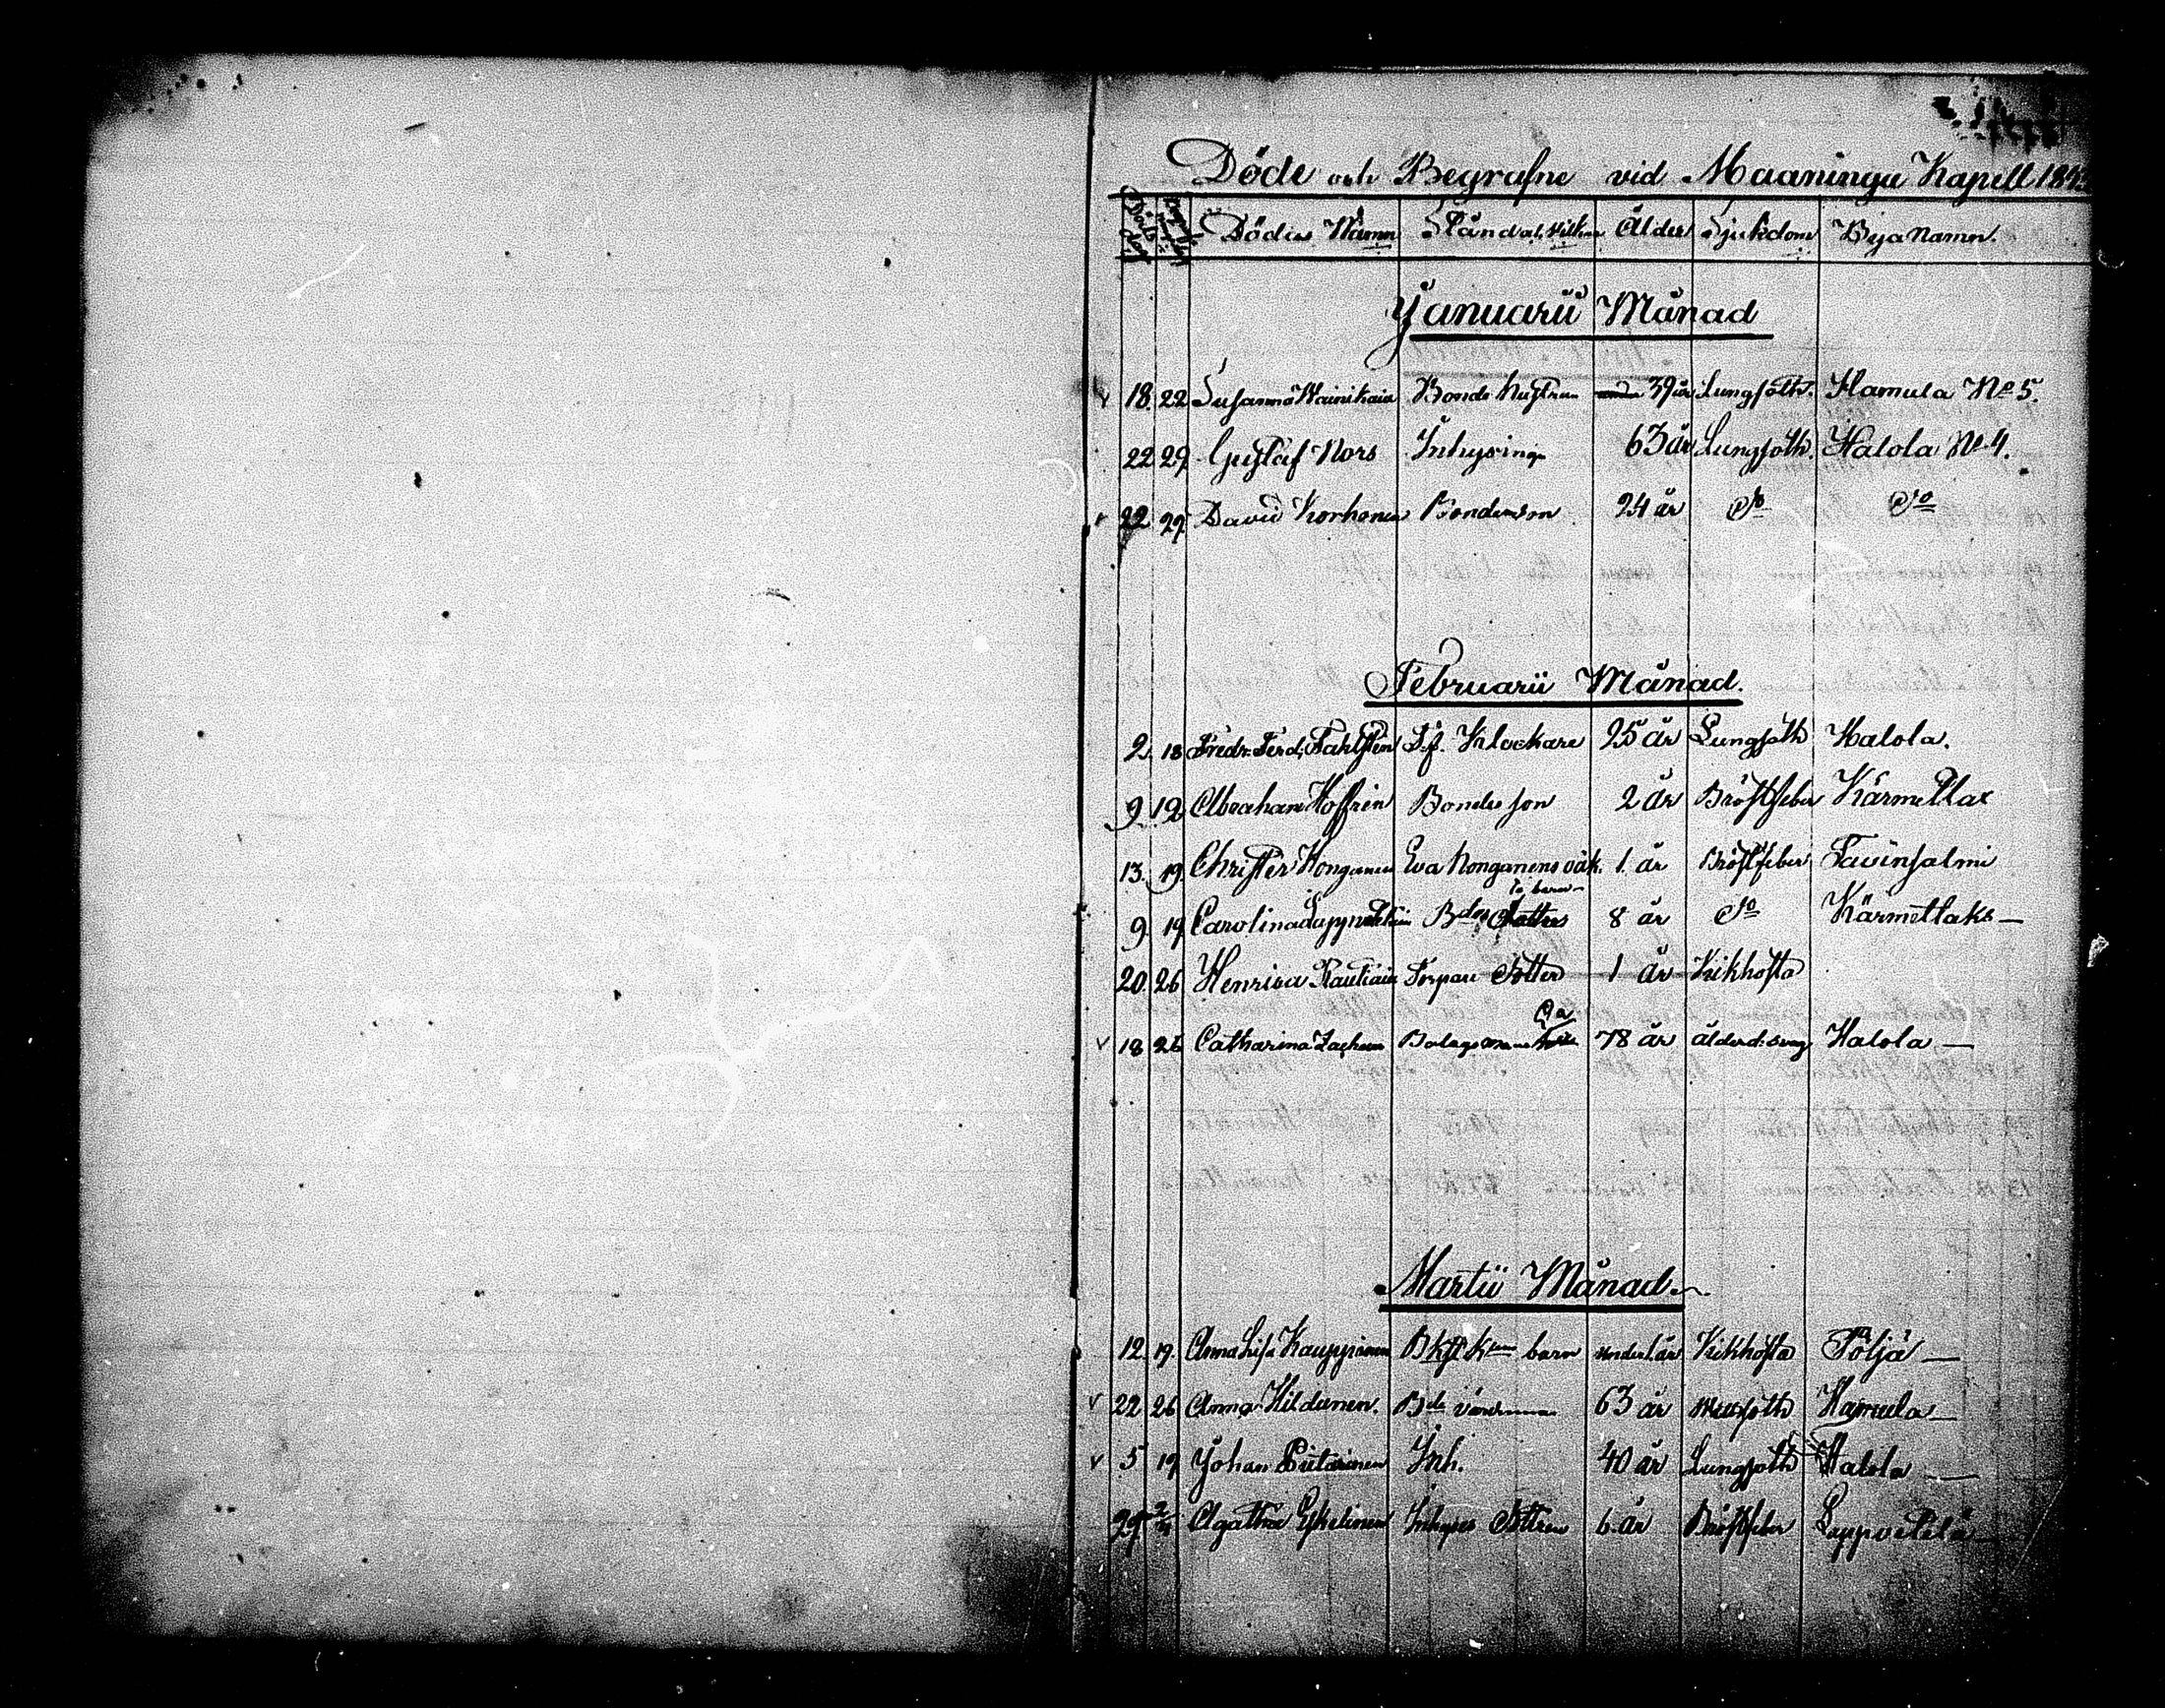 Döde och Begrafne vid Maaninga Kapell
Dödes Namn Stånd Ålder Sjukdom Byanamn.
Januarii Månad
18. 22 Susanna Wainikain Bonde hustru 39 år Lungsoth. Hamula No 5.
22 29 Gustaf Nors Inhysing 63 år Lungsoth. Halola No 4.
22 29 David Korhonen Bondeson 24 år Do Do
Februarii Månad.
2. 18 Fredr. Ferd. Fahlsten T.f. Klockare 25 år Lungsoth Halola.
9. 12 Abraham Hoffrén Bonde son 2 år Bröstfeber Kärmetlax
13. 19. Christer Honganen Eva Honganens oäk. 1. år Bröstfeber Tavinsalmi
barn
9. 19. Carolina Bdes 8 år Do Kärmetlaks —
20. 26 Henrica Rautiain Torpare dotter 1 år Kikhosta
18 26 Catharina Bolagsman 78 år Halola —
Martii Månad.
12. 19. Anna Lisa Kauppinen barn under 1. år Kikhosta Pöljä —
22 26 Anna Hildunen. Bde 63 år Hamula —
5 19 Johan Piitarinen Inh. 40 år Lungsoth Halola —
29 2/4 Agatha Eskelinen Inhyses 6. år Bröstfeber Lappvetelä